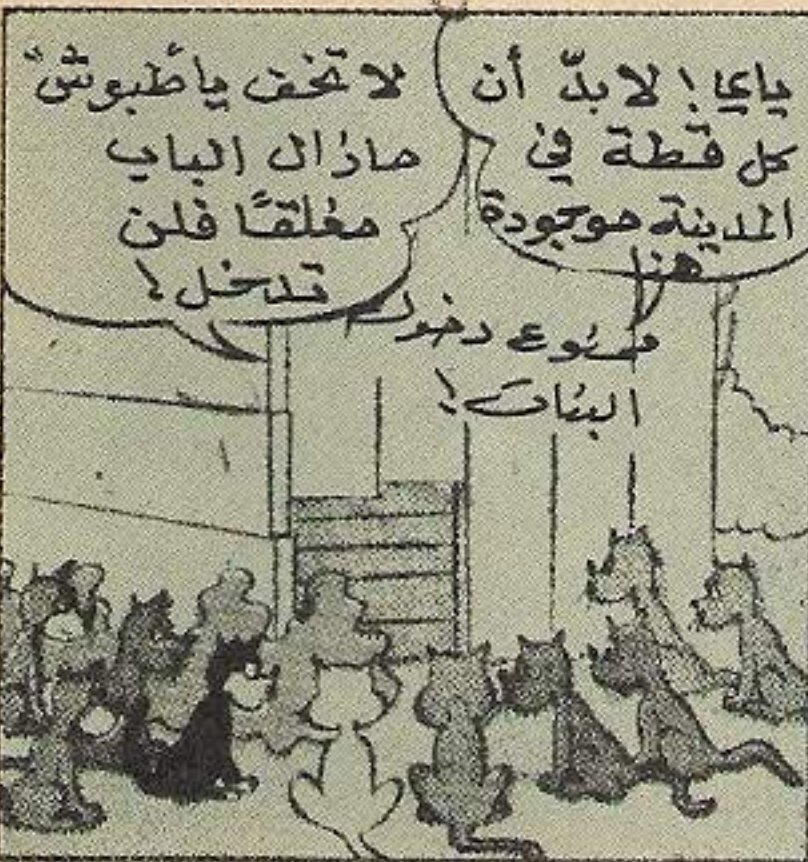 يايا! لا بدّ أن
كل قطة في
المدينة موجودة
هنا
لا تخف يا طبوش
مازال الباب
مغلقًا فلن
تدخل!
ممنوع دخول
البنات!